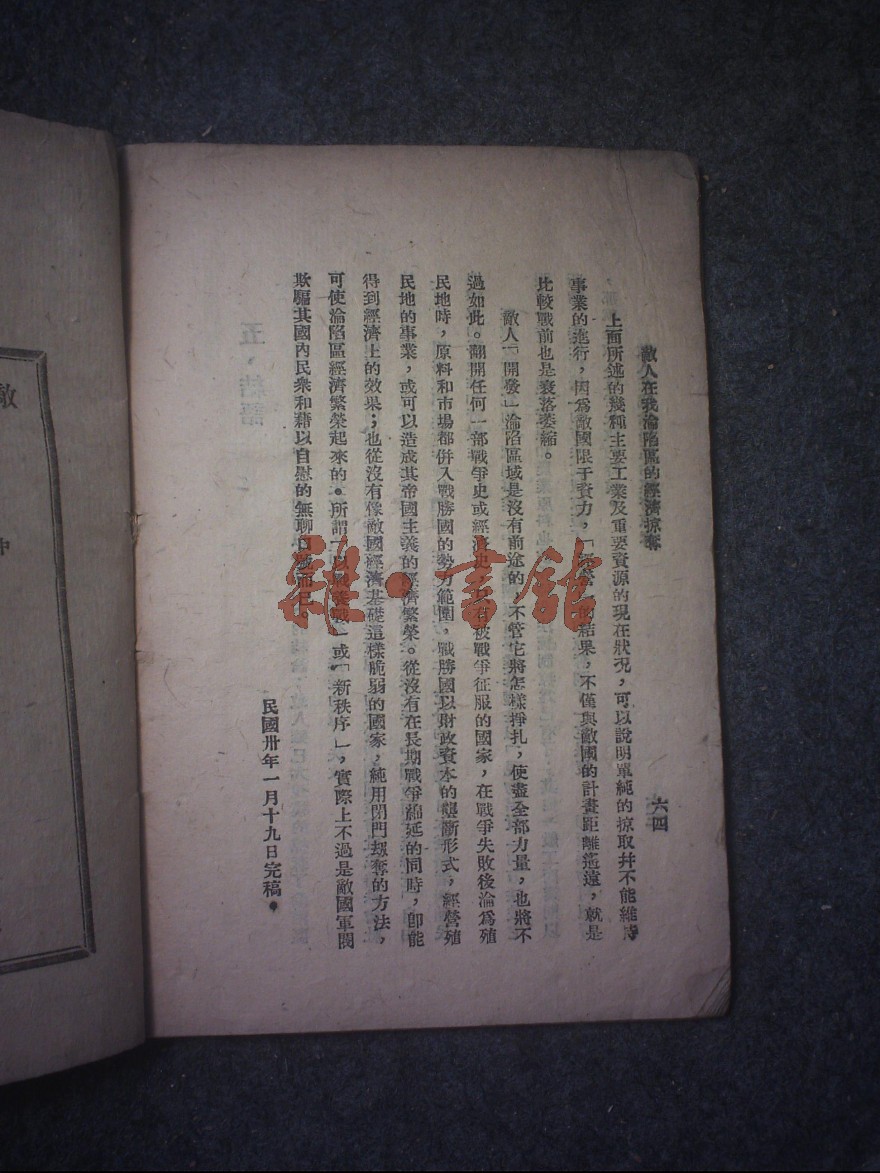 敵人在我淪陷區的經濟掠奪
六四
上面所述的幾種主要工業及重要資源的現在狀況，可以說明單純的掠取幷不能維持
事業的進行，因爲敵國限于資力，「經營」的結果，不僅與敵國的計畫距離遙遠，就是
比較戰前也是衰落萎縮。
敵人「開發」淪陷區域是沒有前途的，不管它將怎樣掙扎，使盡全部力量，也將不
過如此。翻開任何一部戰爭史或經濟史，只有被戰爭征服的國家，在戰爭失敗後淪爲殖
民地時，原料和市場都併入戰勝國的勢力範圍，戰勝國以財政資本的壟斷形式，經營殖
民地的事業，或可以造成其帝國主義的經濟繁榮。從沒有在長期戰爭綿延的同時，卽能
得到經濟上的效果；也從沒有像敵國經濟基礎這樣脆弱的國家，純用閉門刼奪的方法，
可使淪陷區經濟繁榮起來的。所謂「以戰養戰」或「新秩序」，實際上不過是敵國軍閥
欺騙其國內民衆和藉以自慰的無聊口號而已。
民國卅年一月十九日完稿。
雜·書館
敵
中
五、結語